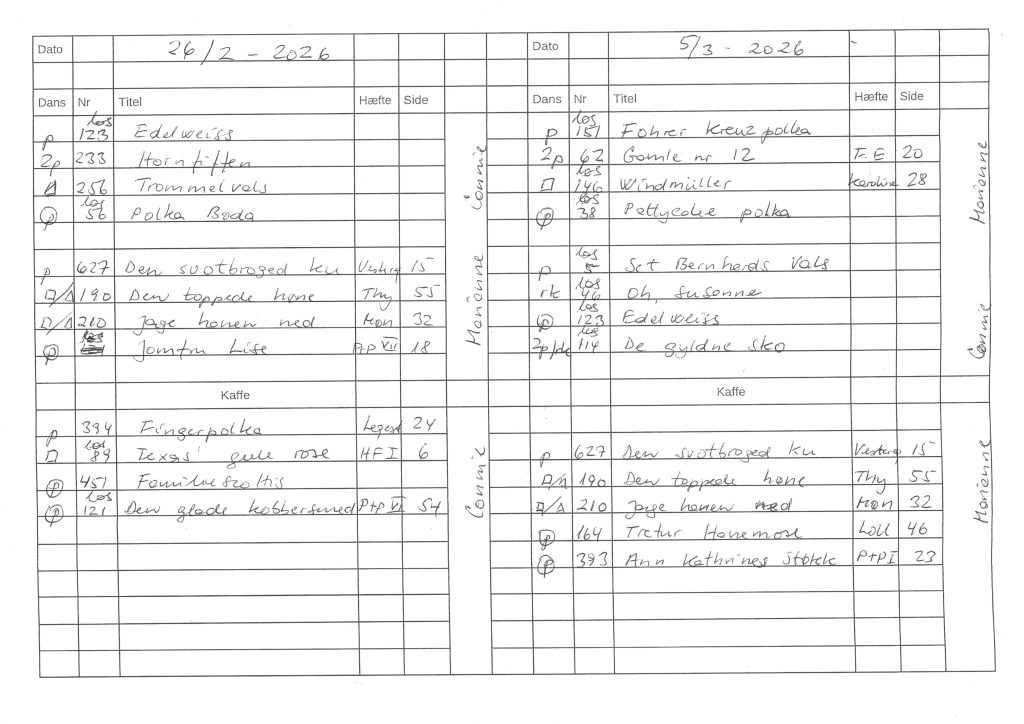 Dato 26/2 - 2026
Dans Nr Titel Hæfte Side
p løs 123 Edelweiss
2p 233 Hornfiften
256 Trommelvals
p løs 56 Polka Boda
p 627 Den svotbroged ku Vesterg 15
□/Δ 190 Den toppede høne Thy 55
□/Δ 210 Jage hanen ned Mon 32
p løs Jomfru Lise P+P VII 18
Connie
Marianne
Kaffe
p 394 Fingerpolka Legest 24
□ løs 89 Texas' gule rose HF I 6
p 451 Familieszottis
p løs 121 Den glade kobbersmed P+P VI 54
Connie
Dato 5/3 - 2026
Dans Nr Titel Hæfte Side
p løs 151 Fohrer Kreuzpolka
2p 62 Gamle nr 12 F.E 20
□ løs 146 Windmüller Karoline 28
p løs 38 Pattycake polka
p løs Sct Bernhards Vals
rk løs 46 Oh, Susanne
p løs 123 Edelweiss
2p/rk løs 114 De gyldne sko
Marianne
Connie
Kaffe
p 627 Den svotbroged ku Vesterg 15
□/Δ 190 Den toppede høne Thy 55
□/Δ 210 Jage hanen ned Mon 32
p 164 Tretur Hanemose Loll 46
p 393 Ann Kathrines Stykke P+P I 23
Marianne